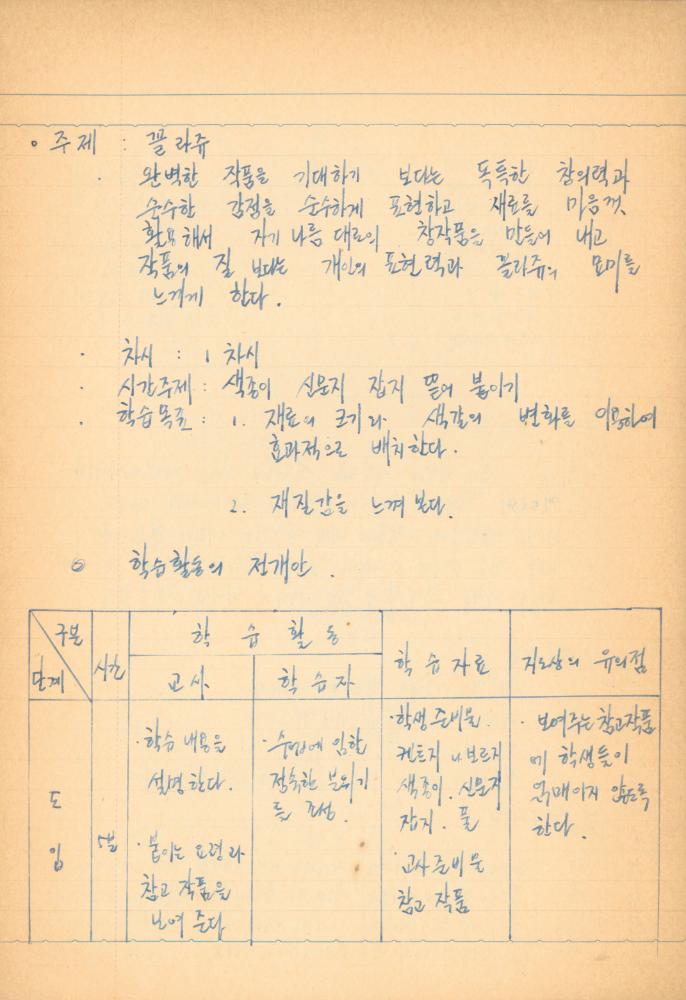 。주제 : 꼴라쥬
· 완벽한 작품을 기대하기 보다는 독특한 창의력과
순수한 감정을 순수하게 표현하고 재료를 마음껏
활용해서 자기 나름대로의 창작품을 만들어 내고
작품의 질 보다는 개인의 표현력과 꼴라쥬의 묘미를
느끼게 한다.
· 차시 : 1 차시
· 시간주제 : 색종이 신문지 잡지 뜯어 붙이기
· 학습목표 : 1. 재료의 크기와 색갈의 변화를 이용하여
효과적으로 배치한다.
2. 재질감을 느껴 본다.
◎ 학습활동의 전개안.
구분
단계
시간
학 습 활 동
교사
학습자
학습자료
지도상의 유의점
도입
5분
· 학습 내용을
설명한다.
· 붙이는 요령과
참고 작품을
보여 준다
· 수업에 임할
정숙한 분위기
를 조성.
· 학생준비물
켄트지 나 보르지
색종이. 신문지
잡지. 풀
· 교사준비물
참고 작품
· 보여주는 참고작품
에 학생들이
얽매이지 않도록
한다.